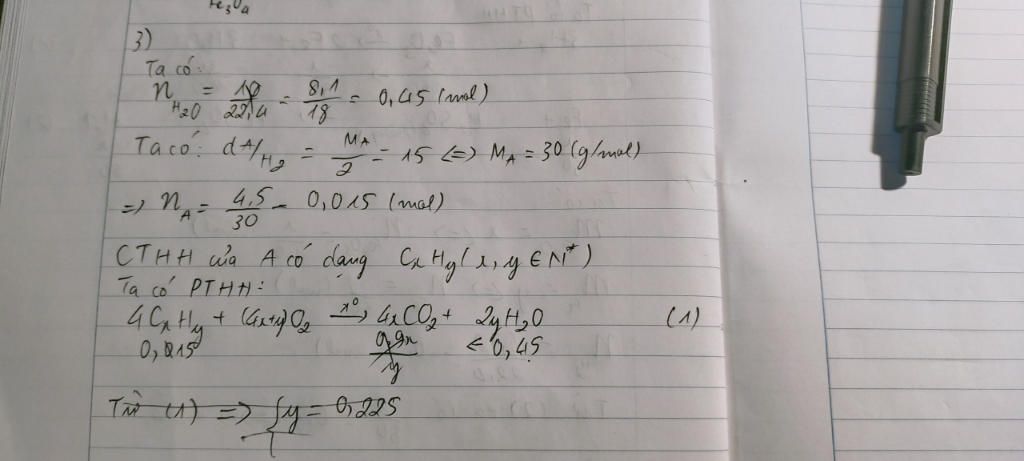 Fe₃O₄
3)
Ta có:
n H₂O = 10/22,4 = 8,1/18 = 0,45 (mol)
Ta có: d A/H₂ = M_A/2 = 15 <=> M_A = 30 (g/mol)
=> n_A = 4,5/30 = 0,015 (mol)
CTHH của A có dạng CxHy (x, y ∈ N*)
Ta có PTHH:
4CxHy + (4x+y)O₂ -t°-> 4xCO₂ + 2yH₂O (1)
0,015 0,9x/y ← 0,45
Từ (1) => { y = 0,225